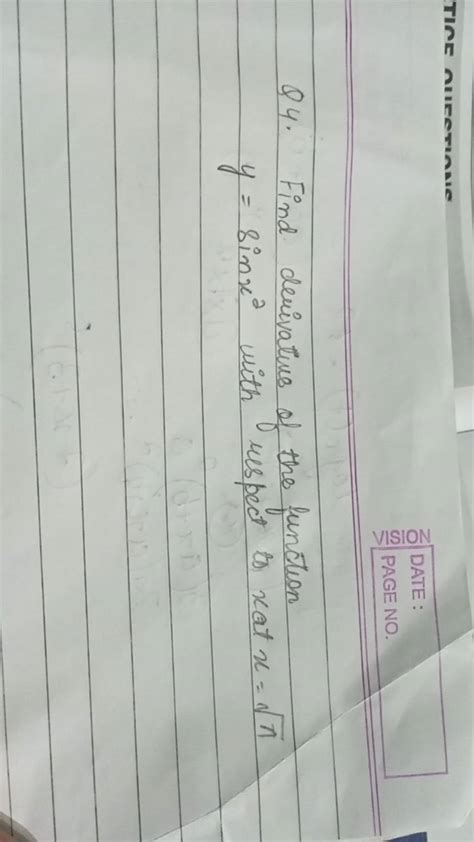 TICE QUESTIONS
VISION
DATE :
PAGE NO.
Q4. Find derivative of the function
y = sinx² with respect to x at x = √π